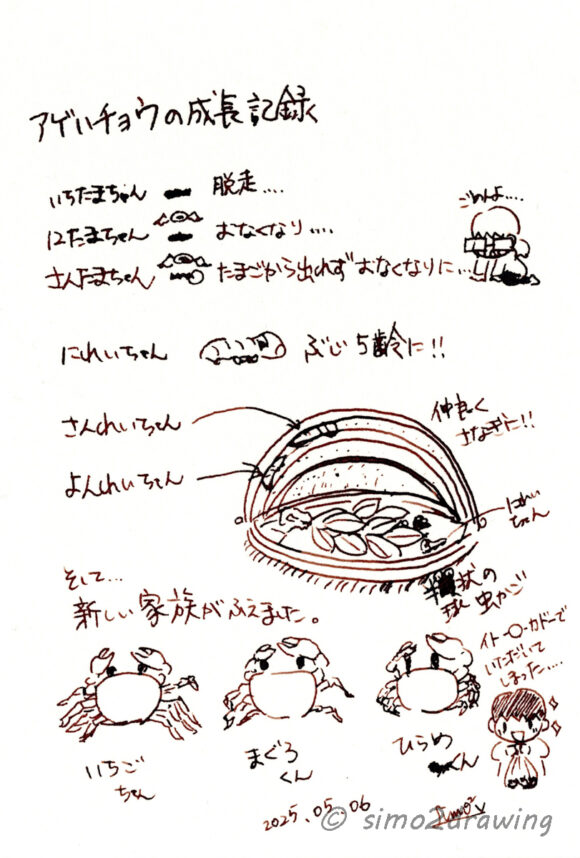 アゲハチョウの成長記録
いちたまちゃん 脱走....
にたまちゃん おなくなり....
さんたまちゃん たまごから出れずおなくなりに...
ごめんよ....
にれいちゃん ぶじ5齢に!!
さんれいちゃん
よんれいちゃん
仲良く
さなぎに!!
にれい
ちゃん
半球状の
虫かご
そして...
新しい家族がふえました。
イトーヨーカドーで
いただいて
しまった....
いちご
ちゃん
まぐろ
くん
ひらめ
くん
2025.05.06
© simo2drawing